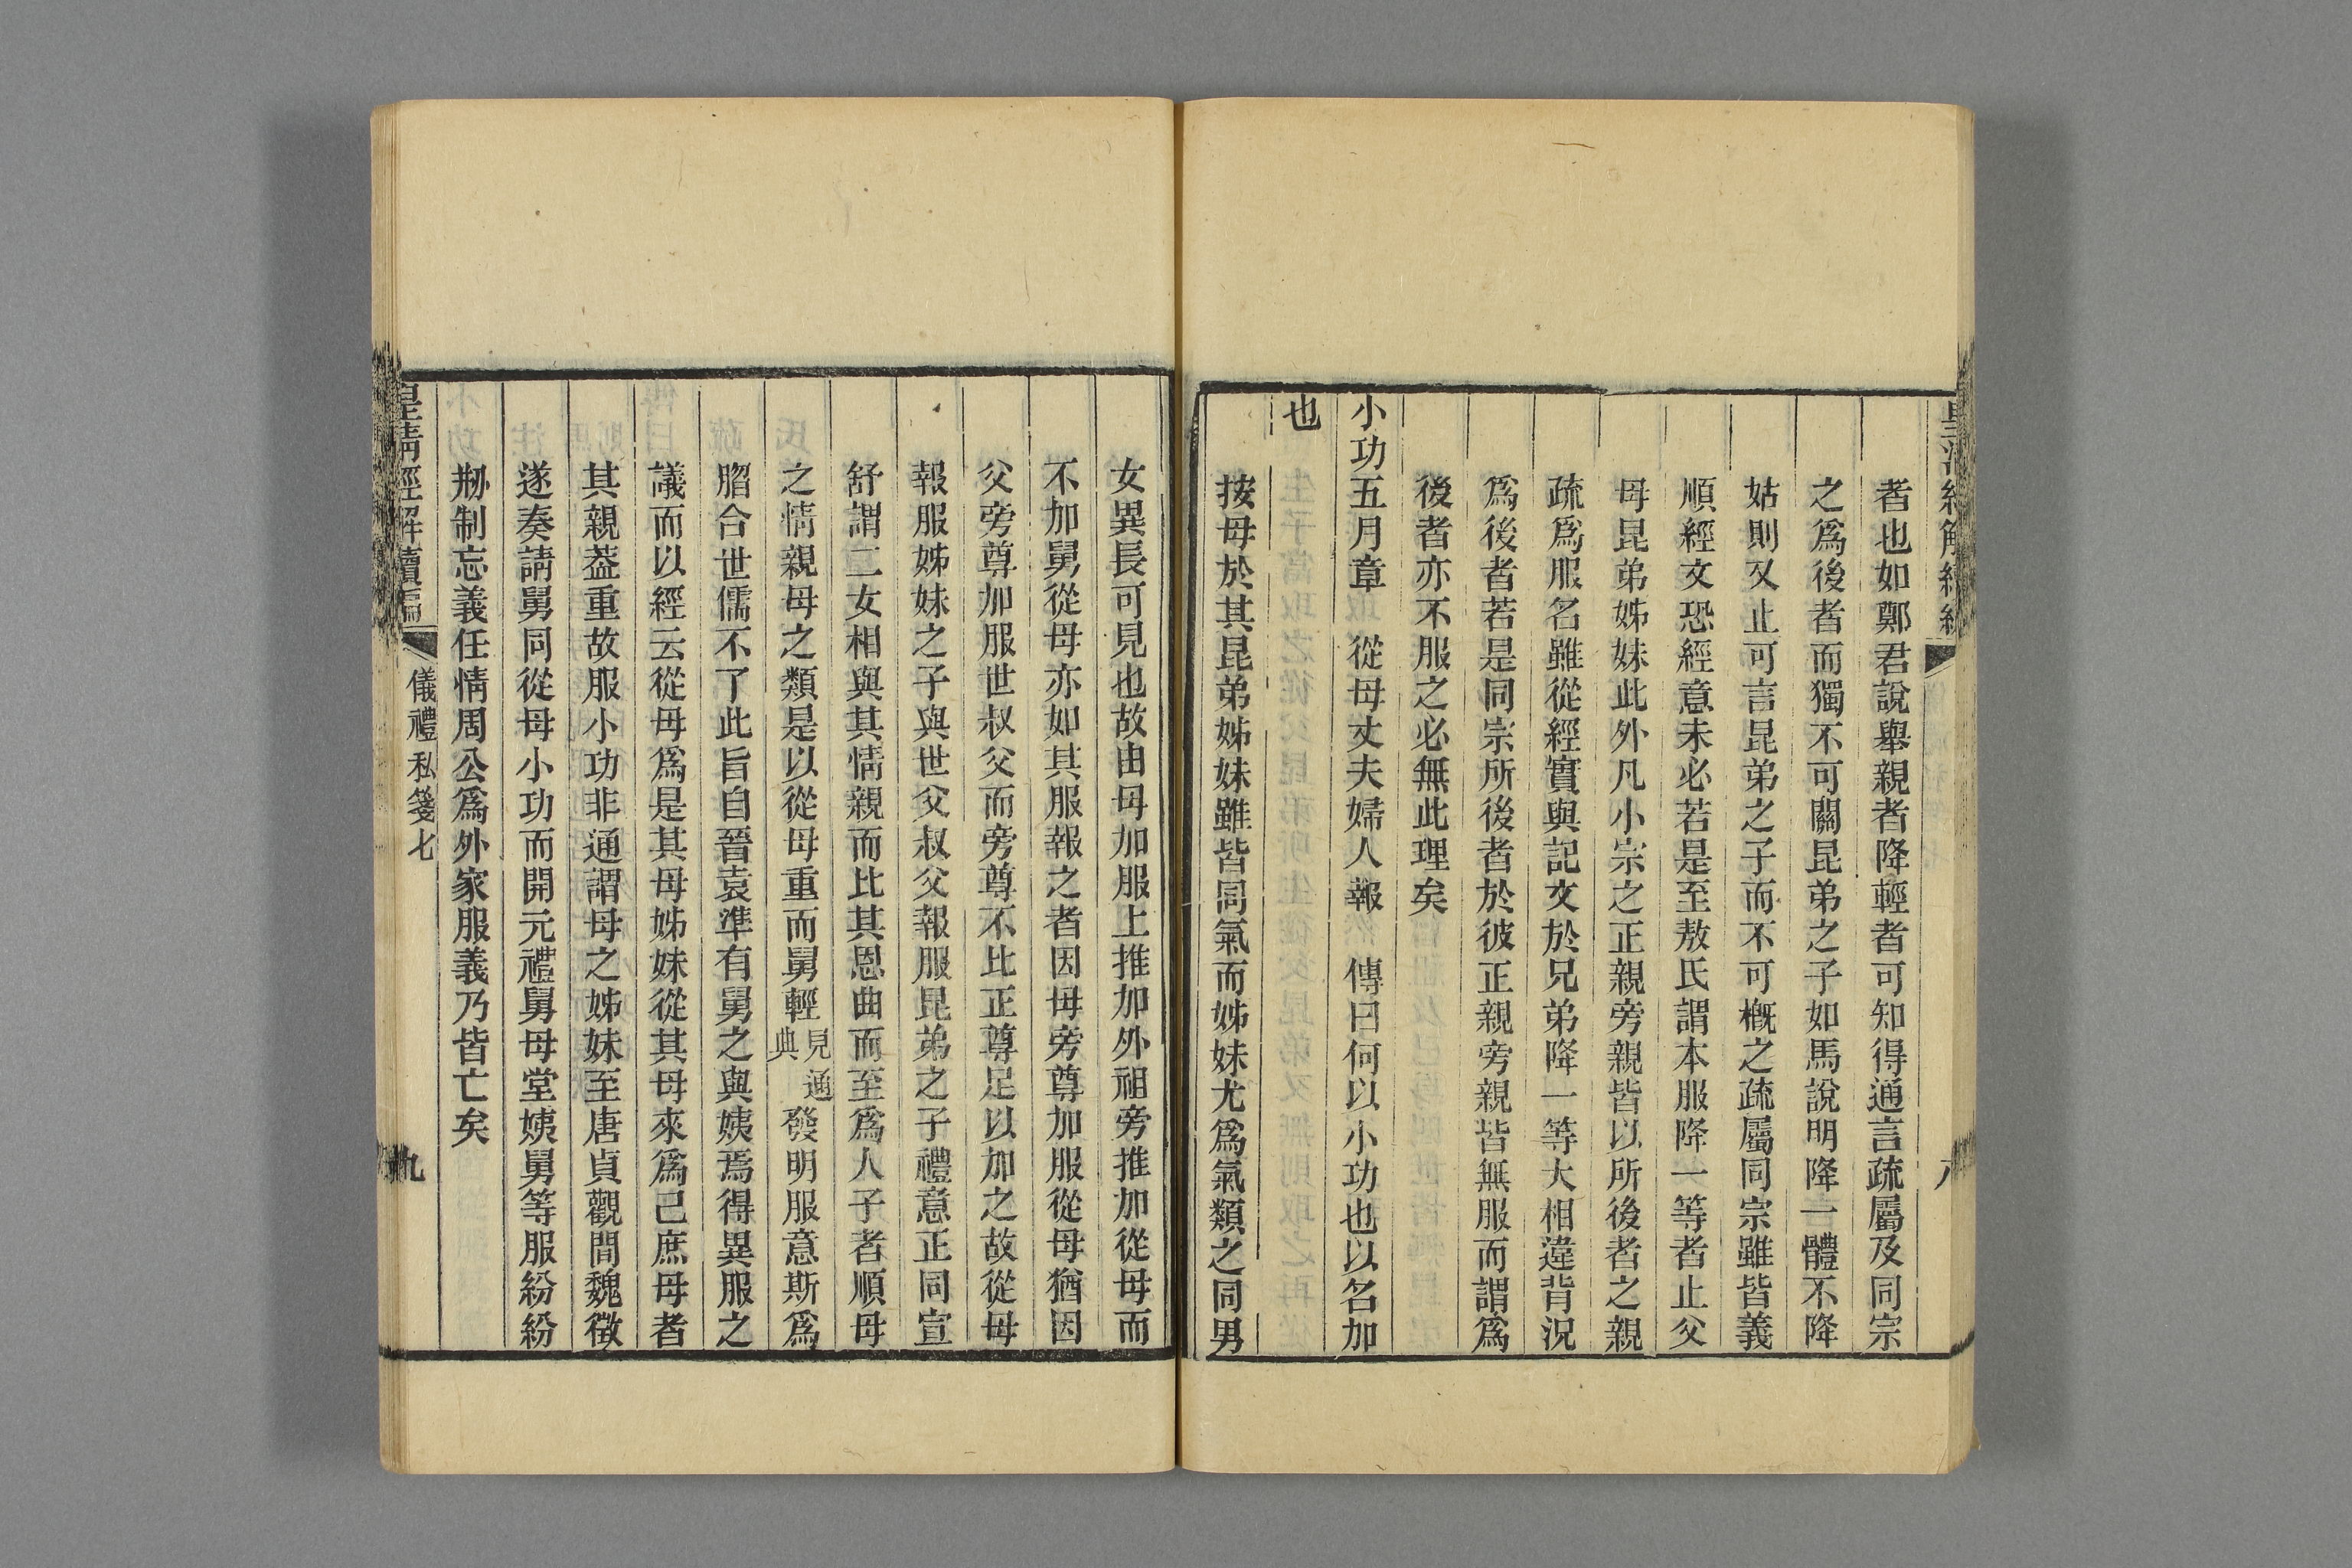 者也如鄭君說舉親者降輕者可知得通言疏屬及同宗
之爲後者而獨不可關昆弟之子如馬說明降一體不降
姑則又止可言昆弟之子而不可槪之疏屬同宗雖皆義
順經文恐經意未必若是至敖氏謂本服降一等者止父
母昆弟姊妹此外凡小宗之正親旁親皆以所後者之親
疏爲服名雖從經實與記文於兄弟降一等大相違背況
爲後者若是同宗所後者於彼正親旁親皆無服而謂爲
後者亦不服之必無此理矣
小功五月章 從母丈夫婦人報 傳曰何以小功也以名加
也
按母於其昆弟姊妹雖皆同氣而姊妹尤爲氣類之同男
女異長可見也故由母加服上推加外祖旁推加從母而
不加舅從母亦如其服報之者因母旁尊加服從母猶因
父旁尊加服世叔父而旁尊不比正尊足以加之故從母
報服姊妹之子與世父叔父報服昆弟之子禮意正同宣
舒謂二女相與其情親而比其恩曲而至爲人子者順母
之情親母之類是以從母重而舅輕見通典發明服意斯爲
脗合世儒不了此旨自晉袁準有舅之與姨焉得異服之
議而以經云從母爲是其母姊妹從其母來爲己庶母者
其親葢重故服小功非通謂母之姊妹至唐貞觀間魏徵
遂奏請舅同從母小功而開元禮舅母堂姨舅等服紛紛
剏制忘義任情周公爲外家服義乃皆亡矣
皇清經解續編 儀禮私箋七 九